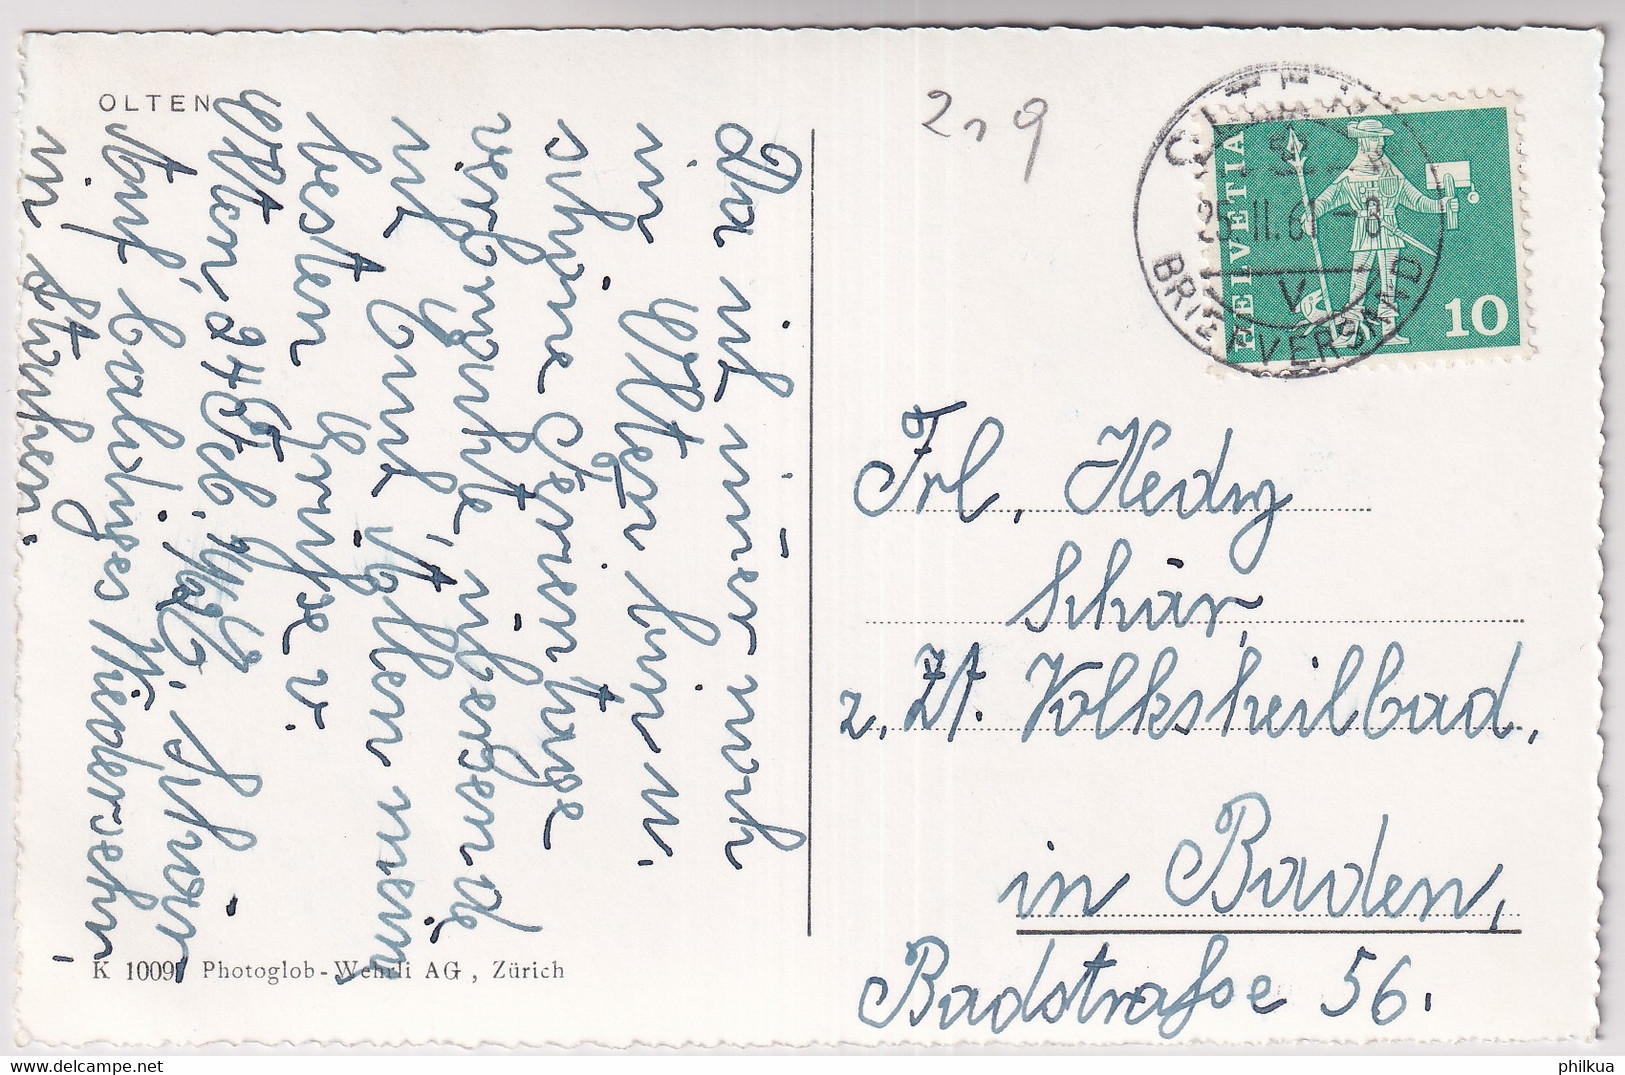 OLTEN
Da ich immer noch
in Olten bin u.
schöne Ferientage
verbringe,
ich Euch Allen meine
besten Grüsse v.
Olten, 24. Feb. 1961
Schär
Auf baldiges Wiedersehn,
in
K 10097 Photoglob-Wehrli AG, Zürich
2,9
OLTEN
25.II.61-8
V
BRIEFVERSAND
HELVETIA
10
Frl. Hedwig
Schär,
z. Zt. Volksheilbad,
in Baden,
Badstraße 56.
philkua